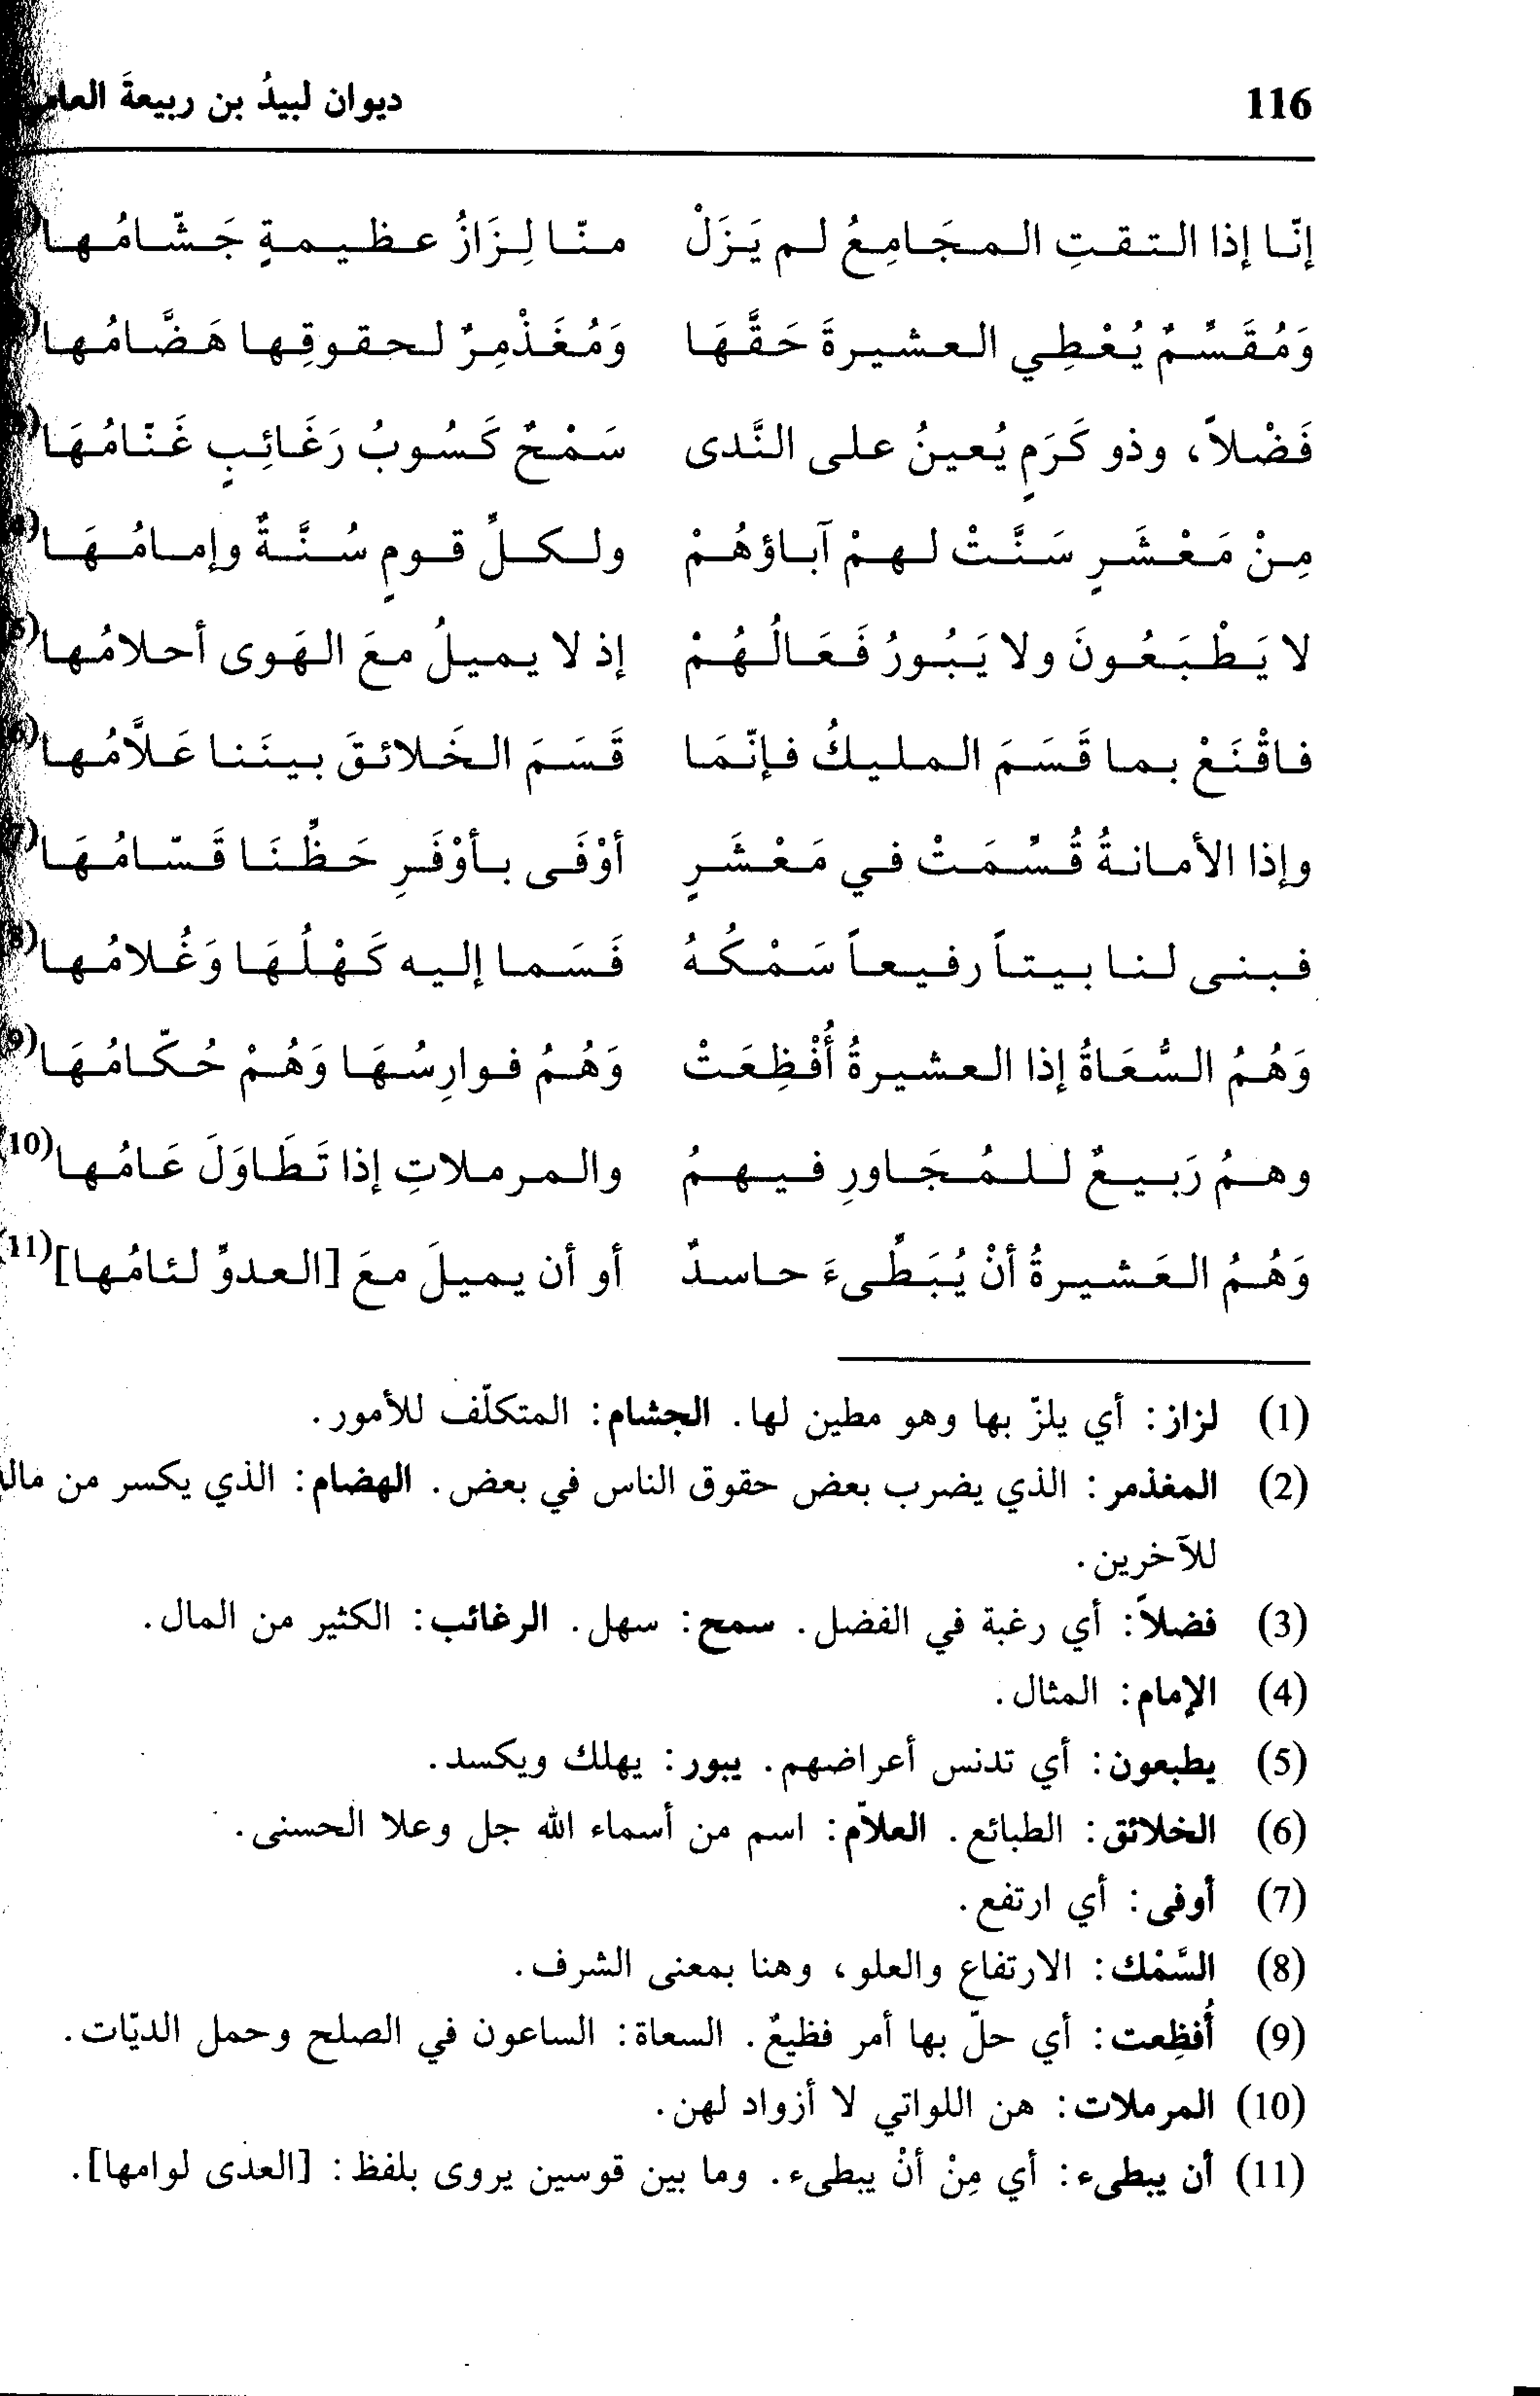 116 ديوان لبيدُ بن ربيعةَ
إنّا إذا التقتِ المجَامِعُ لم يَزَلْ منّا لِزَازُ عظيمةٍ جَشّامُها
وَمُقَسِّمٌ يُعْطِي العشيرةَ حَقَّهَا وَمُغَذْمِرٌ لحقوقِها هَضَّامُها
فَضْلاً، وذو كَرَمٍ يُعينُ على النَّدى سَمْحٌ كَسُوبُ رَغَائِبٍ غَنّامُهَا
مِنْ مَعْشَرٍ سَنَّتْ لهمْ آباؤهُمْ ولكلِّ قومٍ سُنَّةٌ وإمامُهَا
لا يَطْبَعُونَ ولا يَبُورُ فَعَالُهُمْ إذ لا يميلُ معَ الهَوى أحلامُها
فاقْنَعْ بما قَسَمَ المليكُ فإنّمَا قَسَمَ الخَلائقَ بينَنا عَلاَّمُها
وإذا الأمانةُ قُسِّمَتْ في مَعْشَرٍ أوْفَى بأوْفَرِ حَظِّنَا قَسّامُهَا
فبنى لنا بيتاً رفيعاً سَمْكُهُ فَسَما إليه كَهْلُهَا وَغُلامُها(8)
وَهُمُ السُّعَاةُ إذا العشيرةُ أُفْظِعَتْ وَهُمُ فوارِسُهَا وَهُمْ حُكّامُهَا(9)
وهمُ رَبيعٌ للمُجَاورِ فيهمُ والمرملاتِ إذا تَطَاوَلَ عَامُها(10)
وَهُمُ العَشيرةُ أنْ يُبَطِّىءَ حاسدٌ أو أن يميلَ معَ [العدوِّ لئامُها](11)
(1) لزاز: أي يلزّ بها وهو مطين لها. الجشام: المتكلّف للأمور.
(2) المغذمر: الذي يضرب بعض حقوق الناس في بعض. الهضام: الذي يكسر من ماله
للآخرين.
(3) فضلاً: أي رغبة في الفضل. سمح: سهل. الرغائب: الكثير من المال.
(4) الإمام: المثال.
(5) يطبعون: أي تدنس أعراضهم. يبور: يهلك ويكسد.
(6) الخلائق: الطبائع. العلاّم: اسم من أسماء الله جل وعلا الحسنى.
(7) أوفى: أي ارتفع.
(8) السَّمْك: الارتفاع والعلو، وهنا بمعنى الشرف.
(9) أُفظِعت: أي حلّ بها أمر فظيعٌ. السعاة: الساعون في الصلح وحمل الديّات.
(10) المرملات: هن اللواتي لا أزواد لهن.
(11) أن يبطىء: أي مِنْ أنْ يبطىء. وما بين قوسين يروى بلفظ: [العدى لوامها].